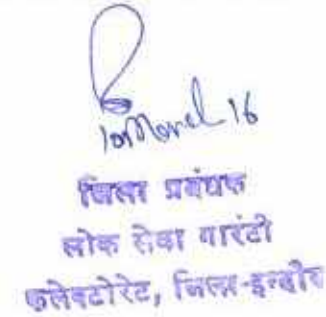 16
जिला प्रबंधक
लोक सेवा गारंटी
कलेक्टोरेट, जिला-इन्दौर